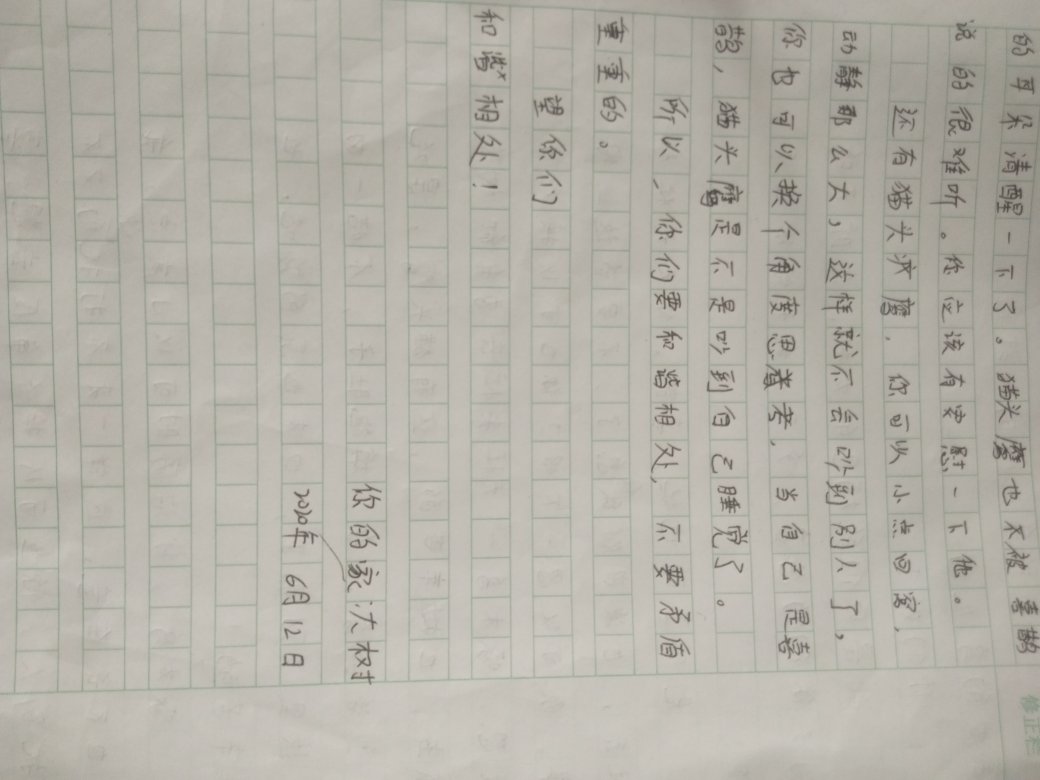 的耳朵清醒一下了。猫头鹰也不被喜鹊
说的很难听。你应该有安慰一下他。
还有猫头鹰，你可以小点回窝，
动静那么大，这样就不会吵到别人了，
你也可以换个角度思考，当自己是喜
鹊，猫头鹰是不是吵到自己睡觉了。
所以，你们要和谐相处，不要矛盾
重重的。
望你们
和谐相处！
你的家大树
2020年6月12日
修正栏